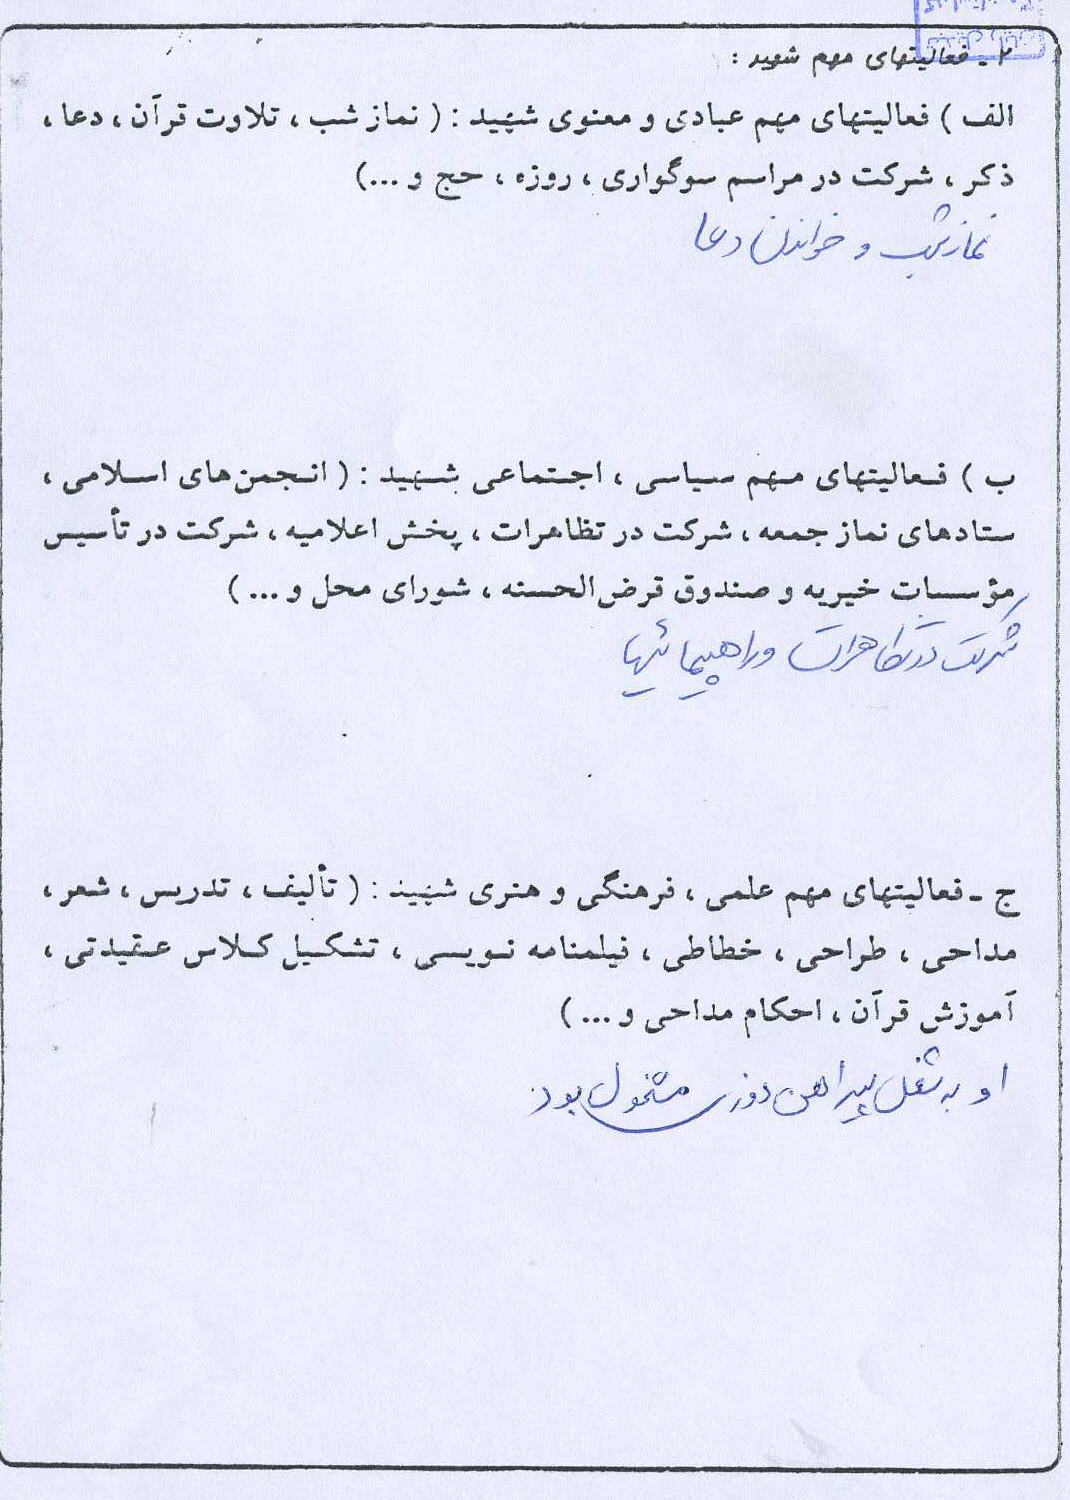 ۲ ـ فعالیتهای مهم شهید :
الف ) فعالیتهای مهم عبادی و معنوی شهید : ( نماز شب ، تلاوت قرآن ، دعا ،
ذکر ، شرکت در مراسم سوگواری ، روزه ، حج و ...)
نماز شب و خواندن دعا
ب ) فعالیتهای مهم سیاسی ، اجتماعی شهید : ( انجمن‌های اسلامی ،
ستادهای نماز جمعه ، شرکت در تظاهرات ، پخش اعلامیه ، شرکت در تأسیس
مؤسسات خیریه و صندوق قرض‌الحسنه ، شورای محل و ... )
شرکت در تظاهرات و راهپیمائیها
ج ـ فعالیتهای مهم علمی ، فرهنگی و هنری شهید : ( تألیف ، تدریس ، شعر ،
مداحی ، طراحی ، خطاطی ، فیلمنامه نویسی ، تشکیل کلاس عقیدتی ،
آموزش قرآن ، احکام مداحی و ... )
او به شغل پیراهن دوزی مشغول بود.